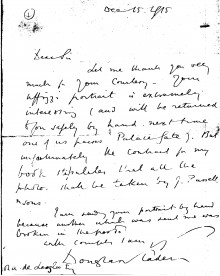 Dec 15. 1915
Dear Sir
Let me thank you very
much for your Courtesy - Your
portrait is extremely
interesting & and will be returned
to you safely by hand next time
one of us passes Palace gate. But
unfortunately the contract for my
book stipulates that all the
photos. shall be taken by J. Russell
& sons.
I am sending your portrait by hand
because another which was sent me was
broken in the post.
with compts I am
Douglas Sladen